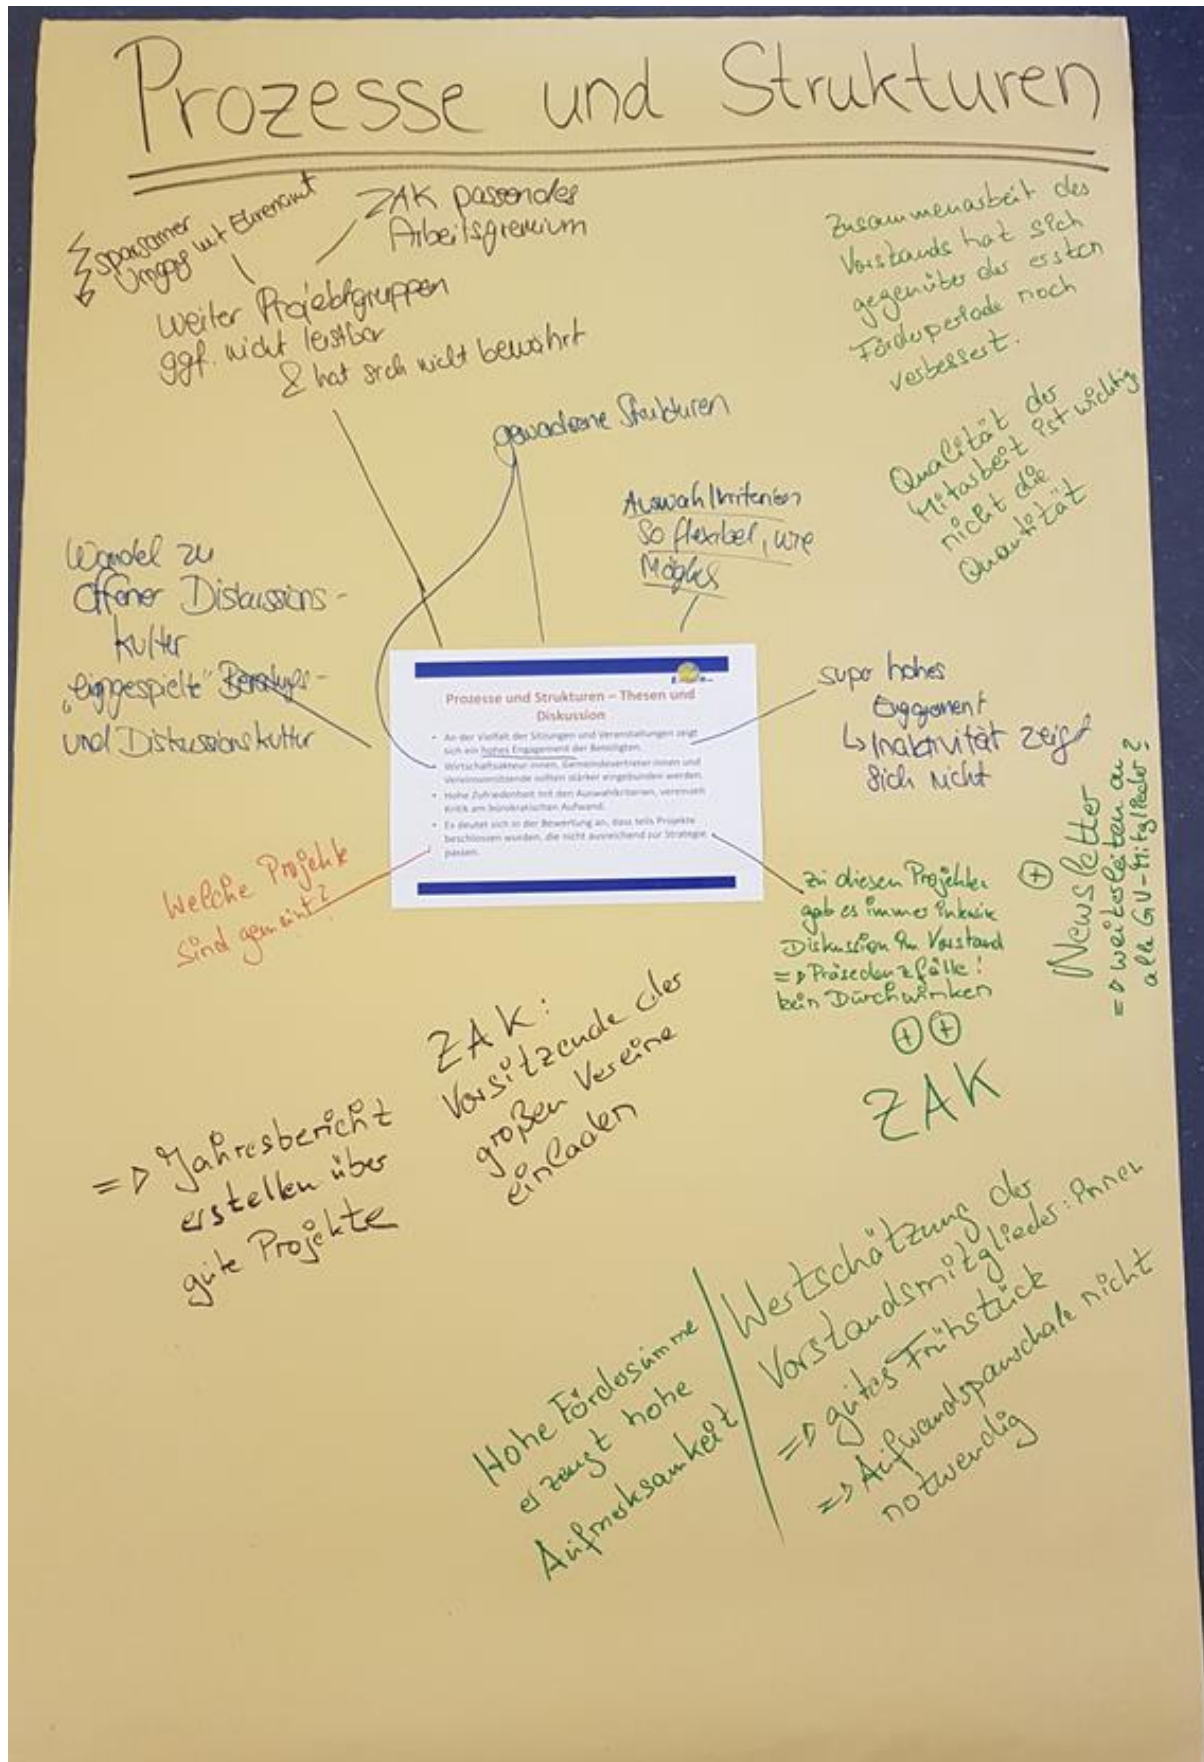 Prozesse und Strukturen
sparsamer
Umgang mit Ehrenamt
ZAK passendes
Arbeitsgremium
weiter Projektgruppen
ggf. nicht leistbar
& hat sich nicht bewährt
Zusammenarbeit des
Vorstands hat sich
gegenüber der ersten
Förderperiode noch
verbessert.
Qualität der
Mitarbeit ist wichtig
nicht die
Quantität
gewachsene Strukturen
Auswahlkriterien
so flexibel, wie
Möglich
Wandel zu
offener Diskussions-
kultur
"eingespielte" Beratungs-
und Diskussionskultur
Prozesse und Strukturen – Thesen und
Diskussion
• An der Vielfalt der Sitzungen und Veranstaltungen zeigt
sich ein hohes Engagement der Beteiligten.
• Wirtschaftsakteur:innen, Gemeindevertreter:innen und
Vereinsvorsitzende sollten stärker eingebunden werden.
• Hohe Zufriedenheit mit den Auswahlkriterien, vereinzelt
Kritik am bürokratischen Aufwand.
• Es deutet sich in der Bewertung an, dass teils Projekte
beschlossen wurden, die nicht ausreichend zur Strategie
passen.
super hohes
Engagement
↳ Inaktivität zeigt
sich nicht
Newsletter
=> weiterleiten an
alle GV-Mitglieder?
Welche Projekte
sind gemeint?
zu diesen Projekten
gab es immer intensive
Diskussion im Vorstand
=> Präsedenzfälle!
kein Durchwinken
ZAK
ZAK:
Vorsitzende der
großen Vereine
einladen
=> Jahresbericht
erstellen über
gute Projekte
Hohe Fördersumme
erzeugt hohe
Aufmerksamkeit
Wertschätzung der
Vorstandsmitglieder:innen
=> gutes Frühstück
=> Aufwandspauschale nicht
notwendig